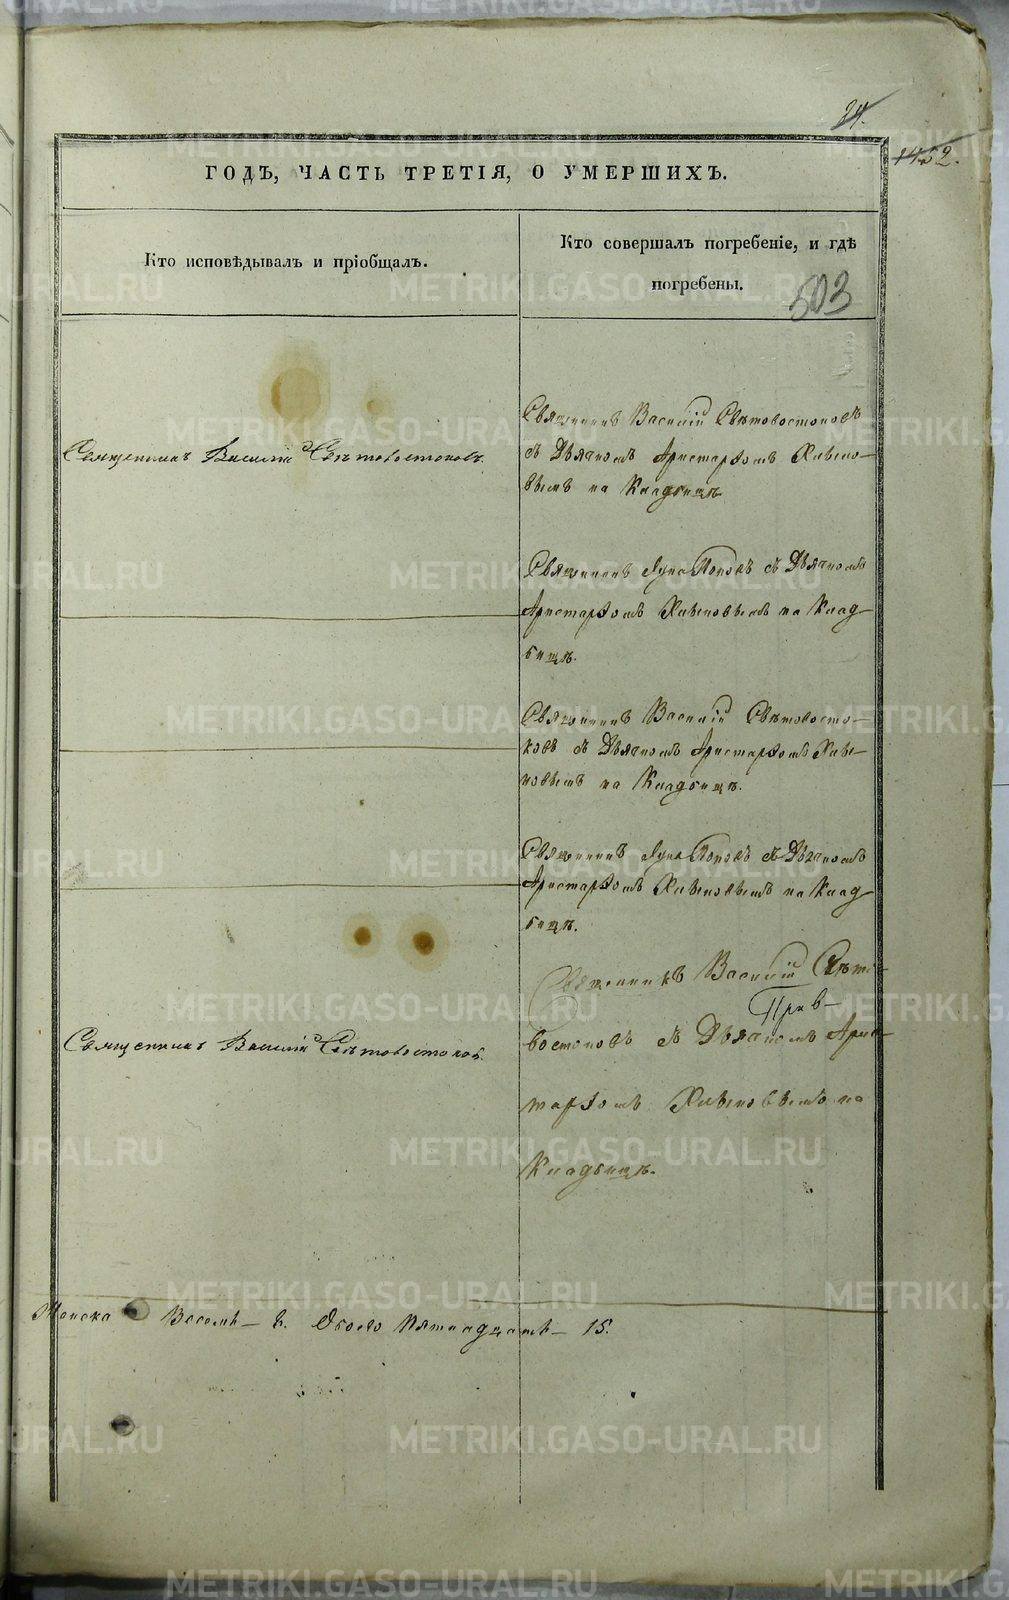 24.
1452.
ГОДЪ, ЧАСТЬ ТРЕТІЯ, О УМЕРШИХЪ.
Кто исповѣдывалъ и пріобщалъ.
Кто совершалъ погребеніе, и гдѣ
погребены.
503
Священникъ Василій Свѣтовостоковъ
Священникъ Василій Свѣтовостоковъ
съ Дьячкомъ Аристархомъ
на Кладбищѣ
Священникъ Лука Поповъ съ Дьячкомъ
Аристархомъ на Клад-
бищѣ.
Священникъ Василій Свѣтовосто-
ковъ съ Дьячкомъ Аристархомъ
на Кладбищѣ.
Священникъ Лука Поповъ съ Дьячкомъ
Аристархомъ на Клад-
бищѣ.
Священникъ Василій Свѣто-
Священникъ Василій Свѣтовостоковъ
востоковъ съ Дьячкомъ Арис-
тархомъ на
Кладбищѣ.
Женска Восемь - 8. Обоего Пятнадцать - 15.
METRIKI.GASO-URAL.RU